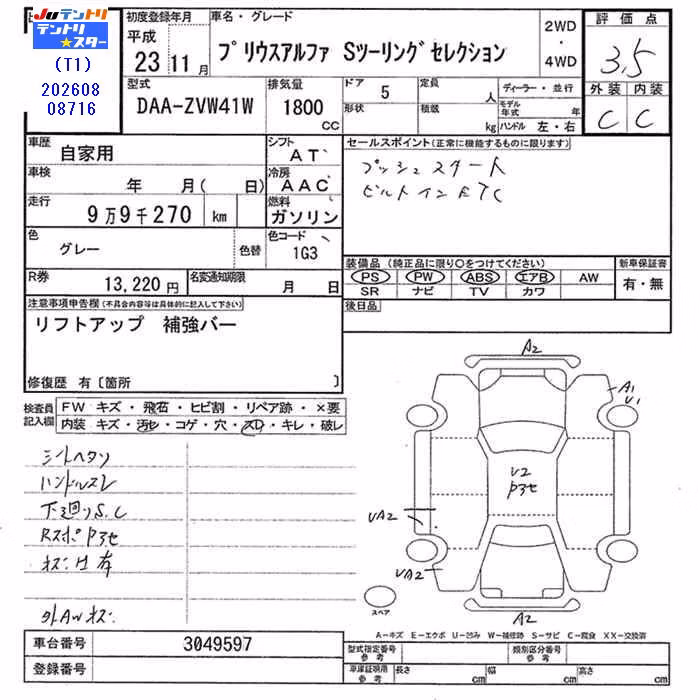 JUテントリ
テントリ★スター
(T1)
202608
08716
初度登録年月
平成
23 11 月
車名・グレード
プリウスアルファ Sツーリングセレクション
2WD
・
4WD
評価点
3,5
外装 内装
C C
型式
DAA-ZVW41W
排気量
1800
CC
ドア 5
形状
定員 人
積載 kg
ディーラー・並行
モデル年式 年
ハンドル 左・右
車歴
自家用
シフト
AT
車検
年 月( 日)
冷房
AAC
走行
9万9千270 km
燃料
ガソリン
色
グレー
色替
色コード
1G3
R券
13,220円
名変通知期限
月 日
セールスポイント(正常に機能するものに限ります)
プッシュスタート
ビルトインETC
装備品 (純正品に限り○をつけてください)
PS PW ABS エアB AW
SR ナビ TV カワ
新車保証書
有・無
後日品
注意事項申告欄(不具合内容等は具体的に記入して下さい)
リフトアップ 補強バー
修復歴 有〔箇所 〕
検査員
記入欄
FW キズ・飛石・ヒビ割・リペア跡・×要
内装 キズ・汚れ・コゲ・穴・スレ・キレ・破レ
シートヘタリ
ハンドルスレ
下廻りS,C
外AWキズ
A2
A1
U1
U2
UA2
UA2
A2
スペア
A-キズ E-エクボ U-凹み W-補修跡 S-サビ C-腐食 XX-交換済
車台番号
3049597
登録番号
型式指定番号
参考
類別区分番号
参考
車庫証明用
参考
長さ cm
幅 cm
高さ cm